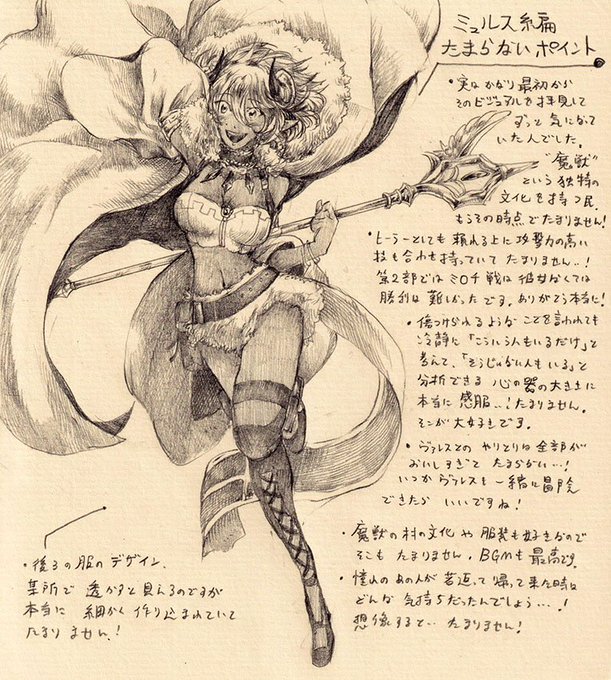 ミュルス編
たまらないポイント
・実はかなり最初から
そのビジュアルを拝見して
ずっと気になって
いた人でした。
"魔獣"
という独特の
文化を持つ民。
もうその時点でたまりません!
・ヒーラーとしても頼れる上に攻撃力の高い
技も合わせ持っていてたまりません..!
第2部ではミロチ戦は彼女なくては
勝利は難しかったです。ありがとう本当に!
・傷つけられるようなことを言われても
冷静に「こういう人もいるだけ」と
考えて、「そうじゃない人もいる」と
分析できる心の器の大きさに
本当に感服...!たまりません。
そこが大好きです。
・ヴァレスとのやりとりは全部が
おいしすぎてたまらない...!
いつかヴァレスも一緒に冒険
できたらいいですね!
・魔獣の村の文化や服装も好きなので
そこもたまりません。BGMも最高です。
・憧れのあの人が若返って帰って来た時は
どんな気持ちだったんでしょう....!
想像すると…たまりません!
・後ろの服のデザイン。
某所で透かすと見えるのですが
本当に細かく作り込まれていて
たまりません!